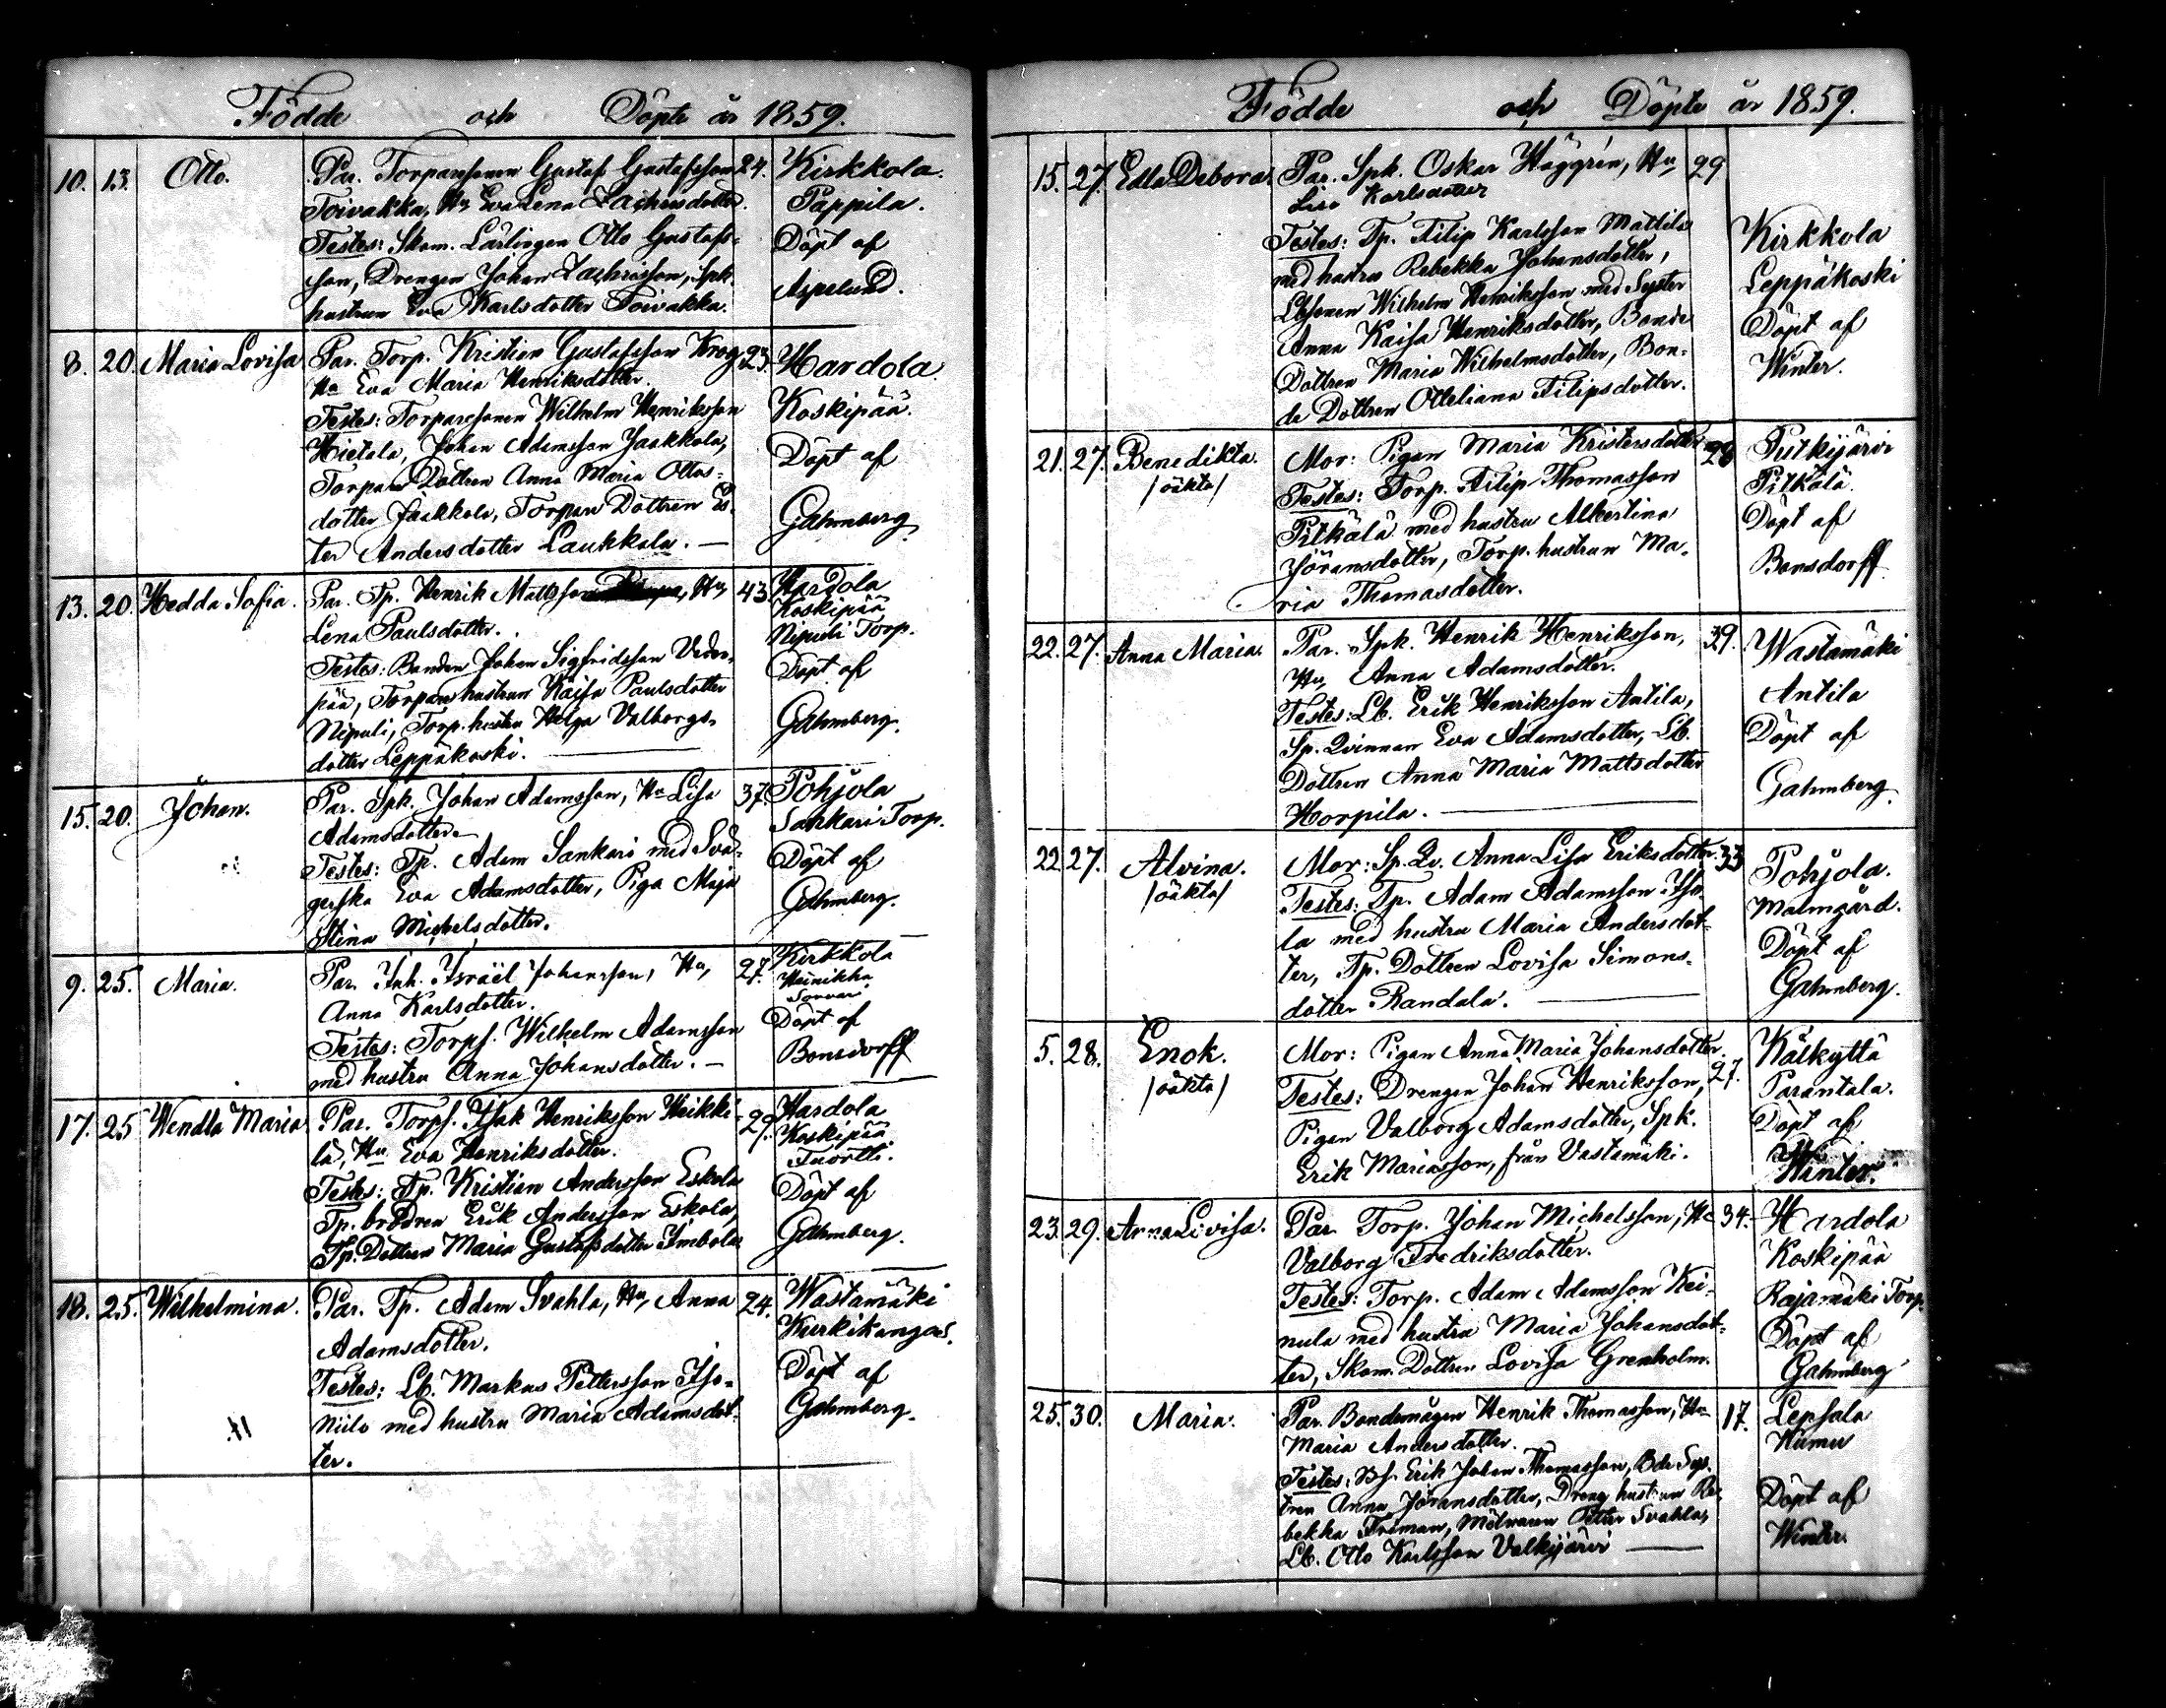 Födde och Döpte år 1859.
10. 13. Otto. Par. Torparesonen Gustaf Gustafsson 24. Kirkkola.
Toivakka, Hu Eva Lena Zachrisdotter. Pappila.
Testes: Skom. Lärlingen Otto Gustafs- Döpt af
son, Drengen Johan Zachrisson, Spk. Aspelund.
hustrun Eva Karlsdotter Toivakka.
8. 20. Maria Lovisa Par. Torp. Kristian Gustafsson Krog 23. Hardola
Hu Eva Maria Henriksdotter.
Testes: Torparesonen Wilhelm Henriksson Koskipää.
Hietala, Johan Adamsson Jaakkola, Döpt af
Torpare Dottren Anna Maria Ottos-
dotter Jaakkola, Torpare Dottren Es- Gahmberg.
ter Andersdotter Laukkala. —
13. 20. Hedda Sofia. Par. Tp. Henrik Mattsson Hu 43. Hardola
Lena Paulsdotter. Koskipää
Nipuli Torp.
Testes: Bonden Johan Sigfridsson Veder- Döpt af
pää, Torpare hustrun Kaisa Paulsdotter
Nipuli, Torp. hustru Helga Valborgs- Gahmberg.
dotter Leppäkoski. —
15. 20. Johan. Par. Spk. Johan Adamsson, Hu Lisa 37. Pohjola
Adamsdotter. Sankari Torp.
Testes: Tp. Adam Sankari med Svä- Döpt af
gerska Eva Adamsdotter, Piga Maja Gahmberg.
Stina Michelsdotter.
9. 25. Maria. Par. Inh. Israël Johansson, Hu, 27. Kirkkola
Anna Karlsdotter. Heinikka
Testes: Torps. Wilhelm Adamsson Döpt af
med hustru Anna Johansdotter. — Bonsdorff
17. 25 Wendla Maria Par. Torps. Isak Henriksson Heikki- 29. Hardola
lä, Hu Eva Henriksdotter. Koskipää
Tuortti.
Testes: Tp. Kristian Andersson Eskola Döpt af
Tp. brodren Erik Andersson Eskola, Gahmberg.
Tp. Dottren Maria Gustafsdotter Imbola
18. 25. Wilhelmina. Par. Tp. Adam Svahla, Hu, Anna 24. Wastamäki
Adamsdotter. Kurkikangas.
Testes: Lb. Markus Pettersson Iso- Döpt af
Niilo med hustru Maria Adamsdot- Gahmberg.
ter.
Födde och Döpte år 1859.
15. 27. Edla Debora. Par. Spk. Oskar Häggrén, Hu, 29
Lisa Karlsdotter
Testes: Tp. Filip Karlsson Mattila Kirkkola
med hustru Rebekka Johansdotter, Leppäkoski
Lbsonen Wilhelm Henriksson med Syster Döpt af
Anna Kaisa Henriksdotter, Bonde Winter.
Dottren Maria Wilhelmsdotter, Bon-
de Dottren Otteliana Filipsdotter.
21. 27. Benedikta. Mor: Pigan Maria Kristersdotter 28 Putkijärvi
/oäkta/ Testes: Torp. Filip Thomasson Pitkälä.
Pitkälä med hustru Albertina Döpt af
Jöransdotter, Torp. hustrun Ma- Bonsdorff
ria Thomasdotter.
22. 27. Anna Maria. Par. Spk. Henrik Henriksson, 39. Wastamäki
Hu, Anna Adamsdotter. Antila
Testes: Lb. Erik Henriksson Antila, Döpt af
Sp. Qvinnan Eva Adamsdotter, Lb.
Dottren Anna Maria Mattsdotter Gahmberg.
Horpila. —
22 27. Alvina. Mor: Sp. Qv. Anna Lisa Eriksdotter. 33 Pohjola.
/oäkta/ Testes: Tp. Adam Adamsson Iso- Malmgård.
la med hustru Maria Andersdot- Döpt af
ter, Tp. Dottren Lovisa Simons- Gahmberg.
dotter Randala. —
5. 28. Enok. Mor: Pigan Anna Maria Johansdotter. 27. Kälkyttä
/oäkta/ Testes: Drengen Johan Henriksson, Parantala.
Pigan Valborg Adamsdotter, Spk. Döpt af
Erik Mariasson, från Vastamäki. Winter.
23. 29. Anna Lovisa. Par. Torp. Johan Michelsson, Hu 34. Hardola
Valborg Fredriksdotter. Koskipää
Testes: Torp. Adam Adamsson Kei- Rajamäki Torp.
nula med hustru Maria Johansdot- Döpt af
ter, Skom. Dottren Lovisa Grenholm. Gahmberg
25. 30. Maria. Par. Bondemågen Henrik Thomasson, Hu 17. Lepsala
Maria Andersdotter. Kumu
Testes: Bs. Erik Johan Thomasson, Bde Sys-
tren Anna Jöransdotter, Dreng hustrun Re- Döpt af
bekka Froman, Mölnaren Petter Svahla, Winter.
Lb. Otto Karlsson Valkjärvi —